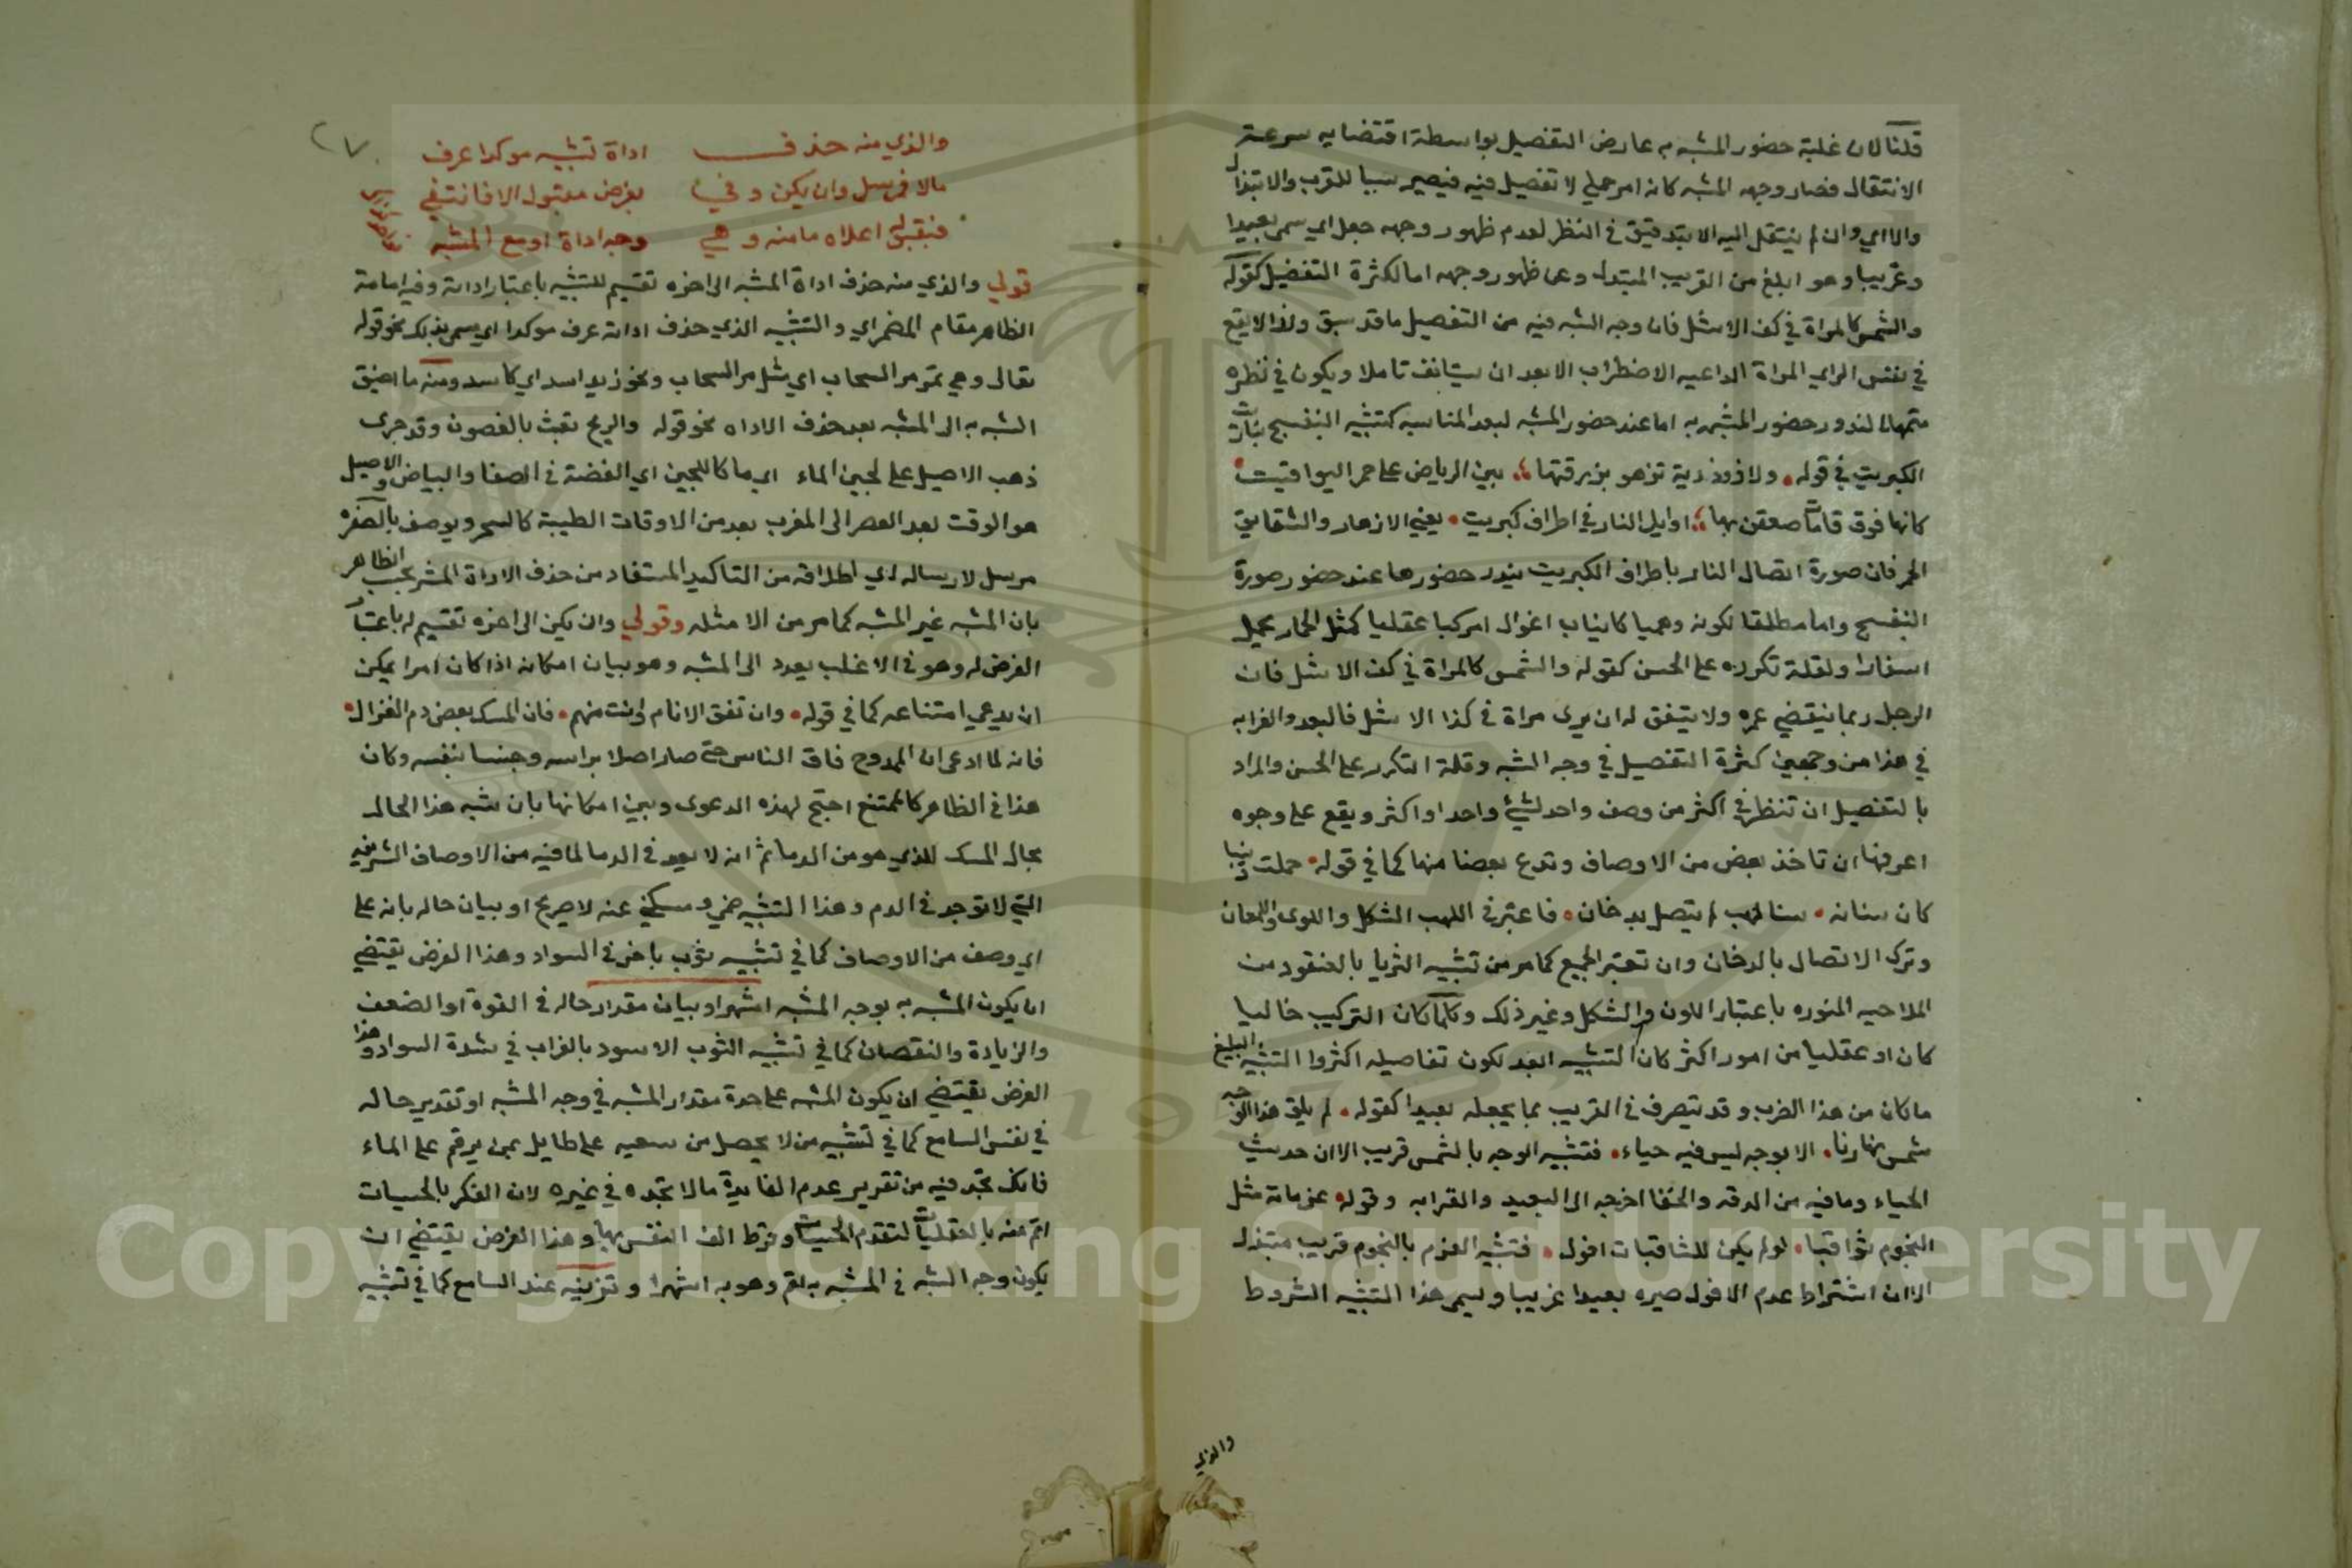 قلنا لان غلبة حضور المشبه به عارض التفصيل بواسطة اقتضايه سرعة
الانتقال فصار وجهه المشبه كانه امر جملي لا تفصيل فيه فيصير سببا للقرب والابتذال
والا اي وان لم ينتقل اليه الا بتدقيق في النظر لعدم ظهور وجهه جعل اي سمى بعيدا
وغريبا وهو ابلغ من القريب المبتدل وعدم ظهور وجهه اما لكثرة التفضيل كقوله
والشمس كالمراة في كف الاشل فان وجه الشبه فيه من التفصيل ما قد سبق ولذا لا يقع
في نفس الراي المراة الداعيه الاضطراب الا بعد ان يستانف تاملا ويكون في نظره
متمهلا لندور حضور المشبه به اما عند حضور المشبه لبعد المناسبه كتشبيه البنفسج بنار
الكبريت في قوله ولازوردية تزهو بزرقتها بين الرياض على حمر اليواقيت
كانها فوق قامات ضعفن بها اوايل النار في اطراف كبريت يعني الازهار والشقايق
الحمر فان صورة اتصال النار باطراف الكبريت يندر حضورها عند حضور صورة
البنفسج واما مطلقا لكونه وهميا كانياب اغوال امركبا عقليا كمثل الحمار يحمل
اسفارا ولقلة تكرره على الحسن كقوله والشمس كالمراة في كف الاشل فان
الرجل ربما ينقضي عمره ولا يتفق له ان يرى مراة في كذا الاشل فالبعد والغرابه
في هذا من وجهين كثرة التفصيل في وجه الشبه وقلة التكرر على الحسن والمراد
بالتفصيل ان تنظر في اكثر من وصف واحد لشيء واحد او اكثر ويقع على وجوه
اعرفها ان تاخذ بعض من الاوصاف وتدع بعضا منها كما في قوله حملت ردينيا
كان سنانه سنا لهب لم يتصل بدخان فاعتبر في اللهب الشكل واللون واللمعان
وترك الاتصال بالدخان وان تعتبر الجميع كما مر من تشبيه الثريا بالعنقود من
الملاحيه المنوره باعتبار اللون والشكل وغير ذلك وكلما كان التركيب خاليا
كان او عقليا من امور اكثر كان التشبيه ابعد لكون تفاصيله اكثر والتشبيه البليغ
ما كان من هذا الضرب وقد يتصرف في القريب بما يجعله بعيدا كقوله لم يلق هذا الوجه
شمس نهارنا الا بوجه ليس فيه حياء فتشبيه الوجه بالشمس قريب الا ان حديث
الحياء وما فيه من الدقه والخفا اخرجه الى البعيد والغرابه وقوله عزماته مثل
النجوم ثواقبا لو لم يكن للثاقبات افول فتشبيه العزم بالنجوم قريب مبتذل
الا ان اشتراط عدم الافول صيره بعيدا غريبا ويسمى هذا التشبيه المشروط
والذي
٢٧
والذي منه حذف اداة تشبيه موكدا عرف
مالا فمرسل وان يكن وفي بغرض مقبول الا فانتفي
فبقبلي اعلاه ما منه وهي وجه اداة او مع المشبه
قولي والذي منه حذف اداة المشبه الى اخره تقسيم للتشبيه باعتبار اداته وفيه اقامة
الظاهر مقام المضمر اي والتشبيه الذي حذف اداته عرف موكدا اي سمى بذلك نحو قوله
تعالى وهي تمر مر السحاب اي مثل مر السحاب ونحو زيد اسد اي كاسد ومنه ما اضيق
الشبه به الى المشبه بعد حذف الاداه نحو قوله والريح تعبث بالغصون وقد جرى
ذهب الاصيل على لجين الماء اي ما كاللجين اي الفضة في الصفا والبياض والاصيل
هو الوقت بعد العصر الى المغرب بعد من الاوقات الطيبة كالسحر ويوصف بالصفره
مرسل لارساله اي اطلاقه من التاكيد المستفاد من حذف الاداة المشعر بحسب الظاهر
بان المشبه غير المشبه كما مر من الامثله وقولي وان يكن الى اخره تقسيم له باعتبار
الغرض له وهو في الاغلب يعود الى المشبه وهو بيان امكانه اذا كان امرا يمكن
ان يدعي امتناعه كما في قوله وان تفق الانام وانت منهم فان المسك بعض دم الغزال
فانه لما ادعى ان الممدوح فاق الناس حتى صار اصلا براسه وجنسا بنفسه وكان
هذا في الظاهر كالممتنع احتج لهذه الدعوى وبين امكانها بان شبه هذا الحال
بحال المسك الذي هو من الدما ثم انه لا يعد في الدما لما فيه من الاوصاف الشريفه
التي لا توجد في الدم وهذا التشبيه ضمني ومسكني عنه لا صريح او بيان حاله بانه على
اي وصف من الاوصاف كما في تشبيه ثوب باخر في السواد وهذا الغرض يقتضي
ان يكون المشبه به بوجه المشبه اشهر او بيان مقدار حاله في القوة او الضعف
والزيادة والنقصان كما في تشبيه الثوب الاسود بالغراب في شدة السواد وهذا
الغرض يقتضي ان يكون المشبه على حدة مقدار المشبه في وجه المشبه او تقدير حاله
في نفس السامع كما في تشبيه من لا يحصل من سعيه على طايل بمن يرقم على الماء
فانك تجد فيه من تقرير عدم الفايدة ما لا تجده في غيره لان الفكر بالحسيات
اتم منه بالعقليات لتقدم الحسيات وفرط الف النفس بها وهذا الغرض يقتضي ان
يكون وجه الشبه في المشبه به اتم وهو به اشهر او تزيينه عند السامع كما في تشبيه
Copyright © King Saud University
1957